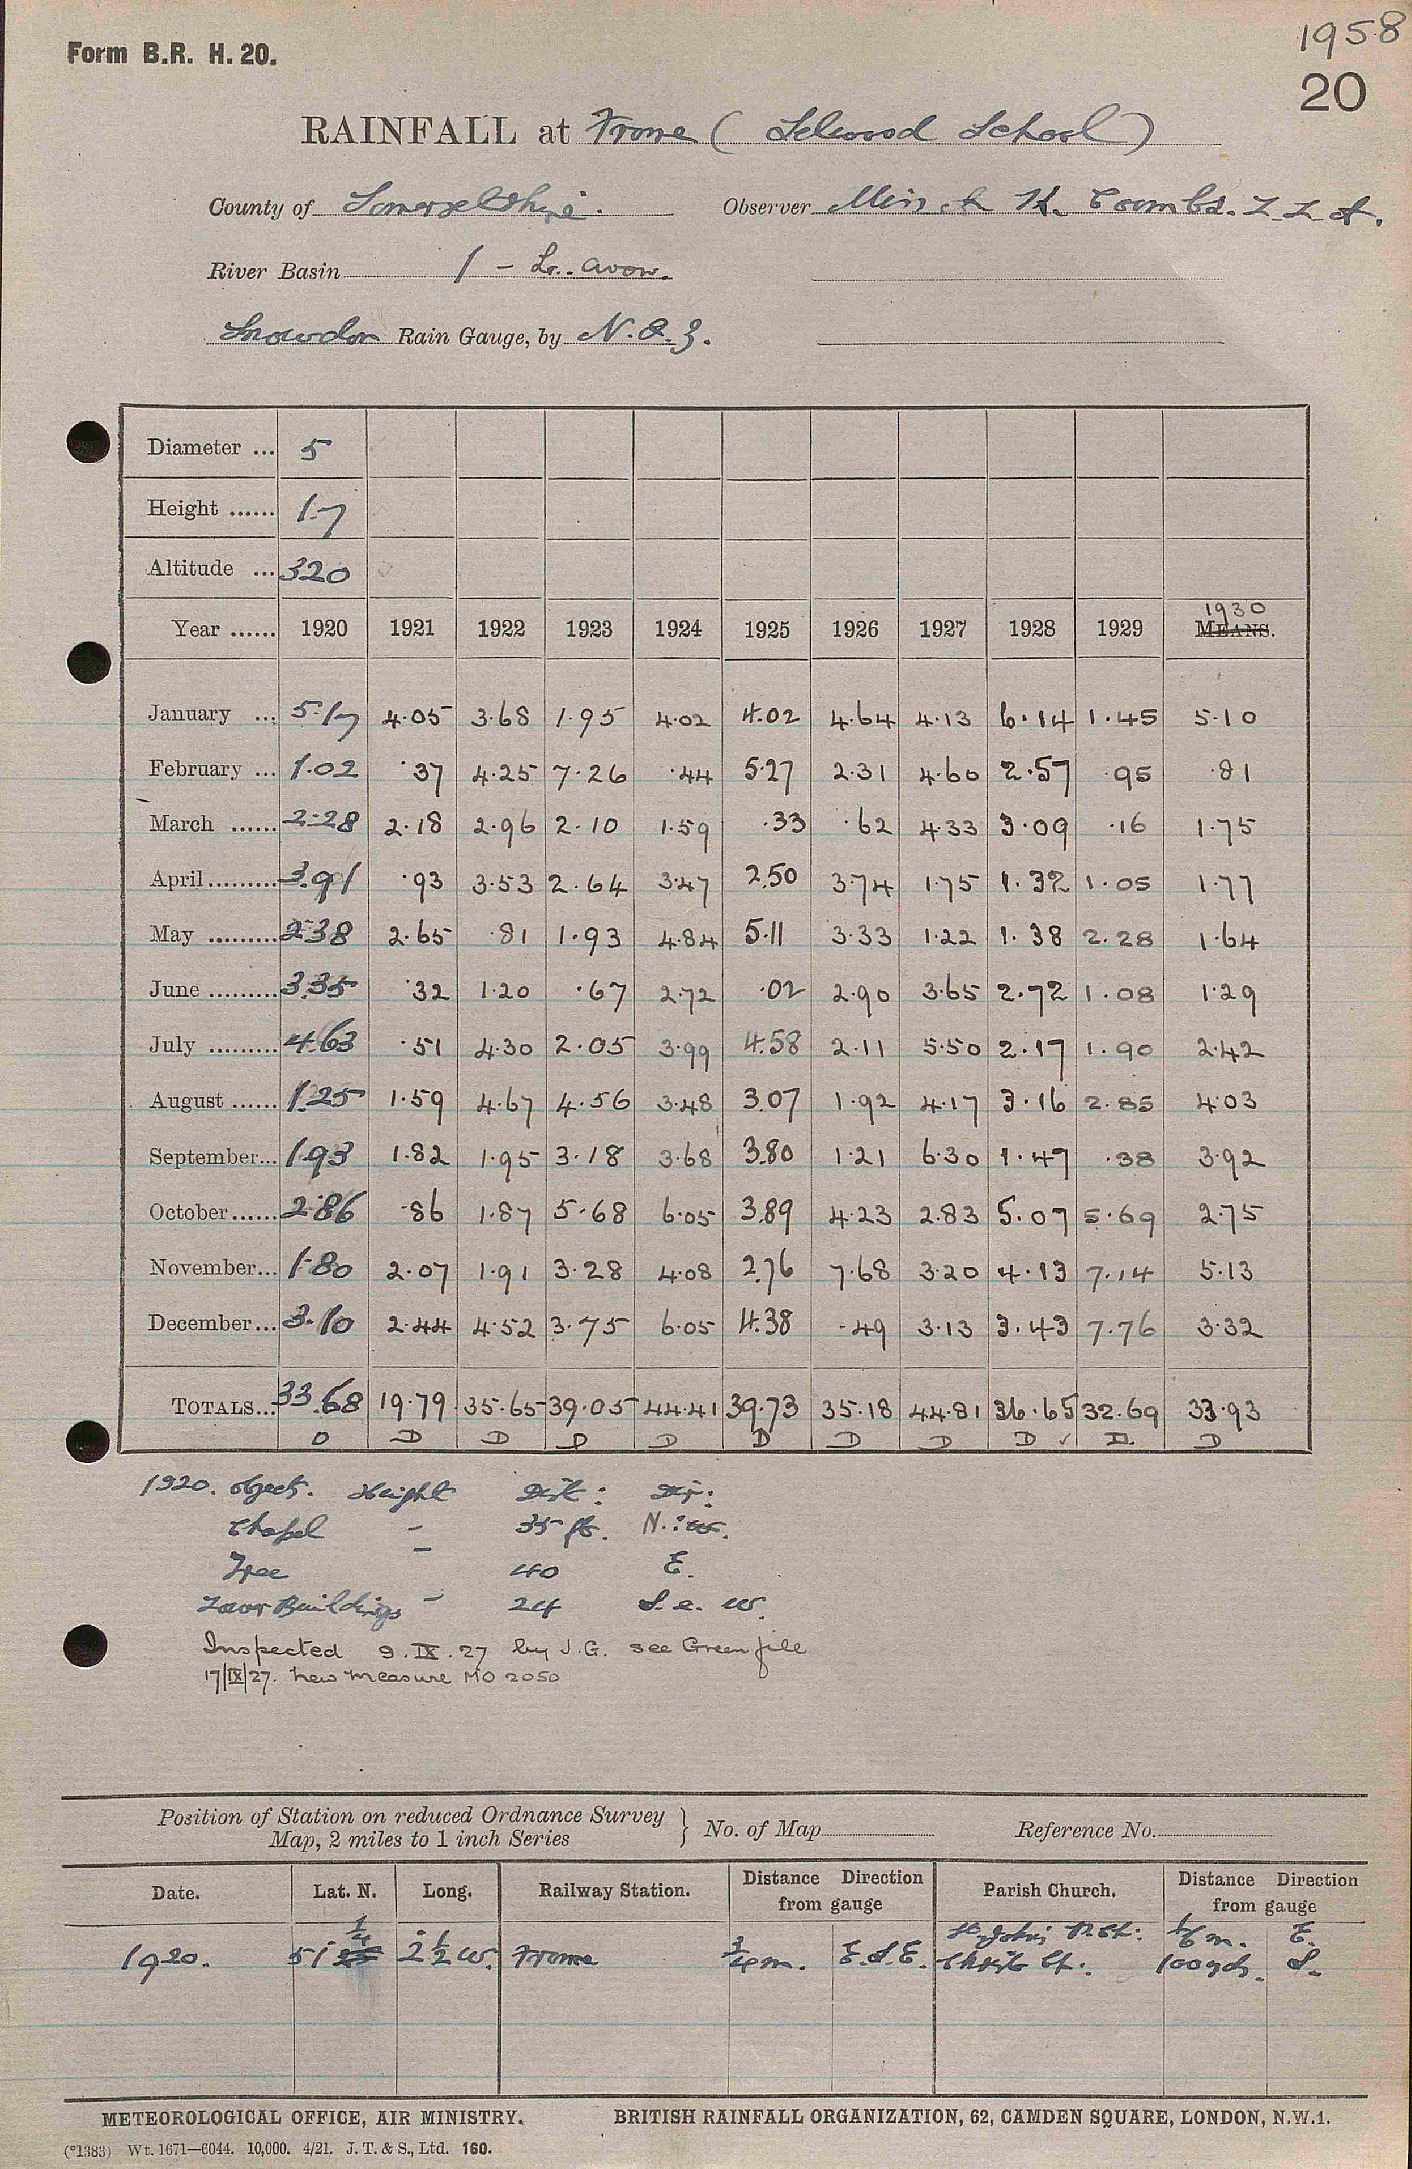 Form B.R. H. 20.
1958
20
RAINFALL at Frome ( Selwood School )
County of Somersetshire. Observer Miss A. H. Coombs. L L A.
River Basin 1 - Lr. Avon.
Snowdon Rain Gauge, by N. & Z.
Diameter ... 5
Height ...... 1.7
Altitude ... 320
1930
Year ...... 1920 1921 1922 1923 1924 1925 1926 1927 1928 1929 MEANS.
January ... 5.17 4.05 3.68 1.95 4.02 4.02 4.64 4.13 6.14 1.45 5.10
February ... 1.02 .37 4.25 7.26 .44 5.27 2.31 4.60 2.57 .95 .81
March ...... 2.28 2.18 2.96 2.10 1.59 .33 .62 4.33 3.09 .16 1.75
April ......... 3.91 .93 3.53 2.64 3.47 2.50 3.74 1.75 1.32 1.05 1.77
May ......... 2.38 2.65 .81 1.93 4.84 5.11 3.33 1.22 1.38 2.28 1.64
June ......... 3.35 .32 1.20 .67 2.72 .02 2.90 3.65 2.72 1.08 1.29
July ......... 4.63 .51 4.30 2.05 3.99 4.58 2.11 5.50 2.17 1.90 2.42
August ...... 1.25 1.59 4.67 4.56 3.48 3.07 1.92 4.17 3.16 2.85 4.03
September... 1.93 1.82 1.95 3.18 3.68 3.80 1.21 6.30 1.47 .38 3.92
October...... 2.86 .86 1.87 5.68 6.05 3.89 4.23 2.83 5.07 5.69 2.75
November... 1.80 2.07 1.91 3.28 4.08 2.76 7.68 3.20 4.13 7.14 5.13
December... 3.10 2.44 4.52 3.75 6.05 4.38 .49 3.13 3.43 7.76 3.32
TOTALS... 33.68 19.79 35.65 39.05 44.41 39.73 35.18 44.81 36.65 32.69 33.93
D D D D D D D D D ✓ D. D
1920. Object. Height Dist: Dir:
Chapel - 35 ft. N.:W.
Tree - 40 E.
Low Buildings - 24 S. & W.
Inspected 9.IX.27 by J.G. see Green file
17/IX/27. New measure MO 2050
Position of Station on reduced Ordnance Survey
Map, 2 miles to 1 inch Series } No. of Map Reference No.
Date. Lat. N. Long. Railway Station. Distance Direction from gauge Parish Church. Distance Direction from gauge
St. John's 1/6 m. E.
1920. 51 1/4 2 1/2 W. Frome 3/4 m. E.S.E. Christ Ch. 100 yds. S.
METEOROLOGICAL OFFICE, AIR MINISTRY. BRITISH RAINFALL ORGANIZATION, 62, CAMDEN SQUARE, LONDON, N.W.1.
(*1383) Wt. 1671—6044. 10,000. 4/21. J. T. & S., Ltd. 160.